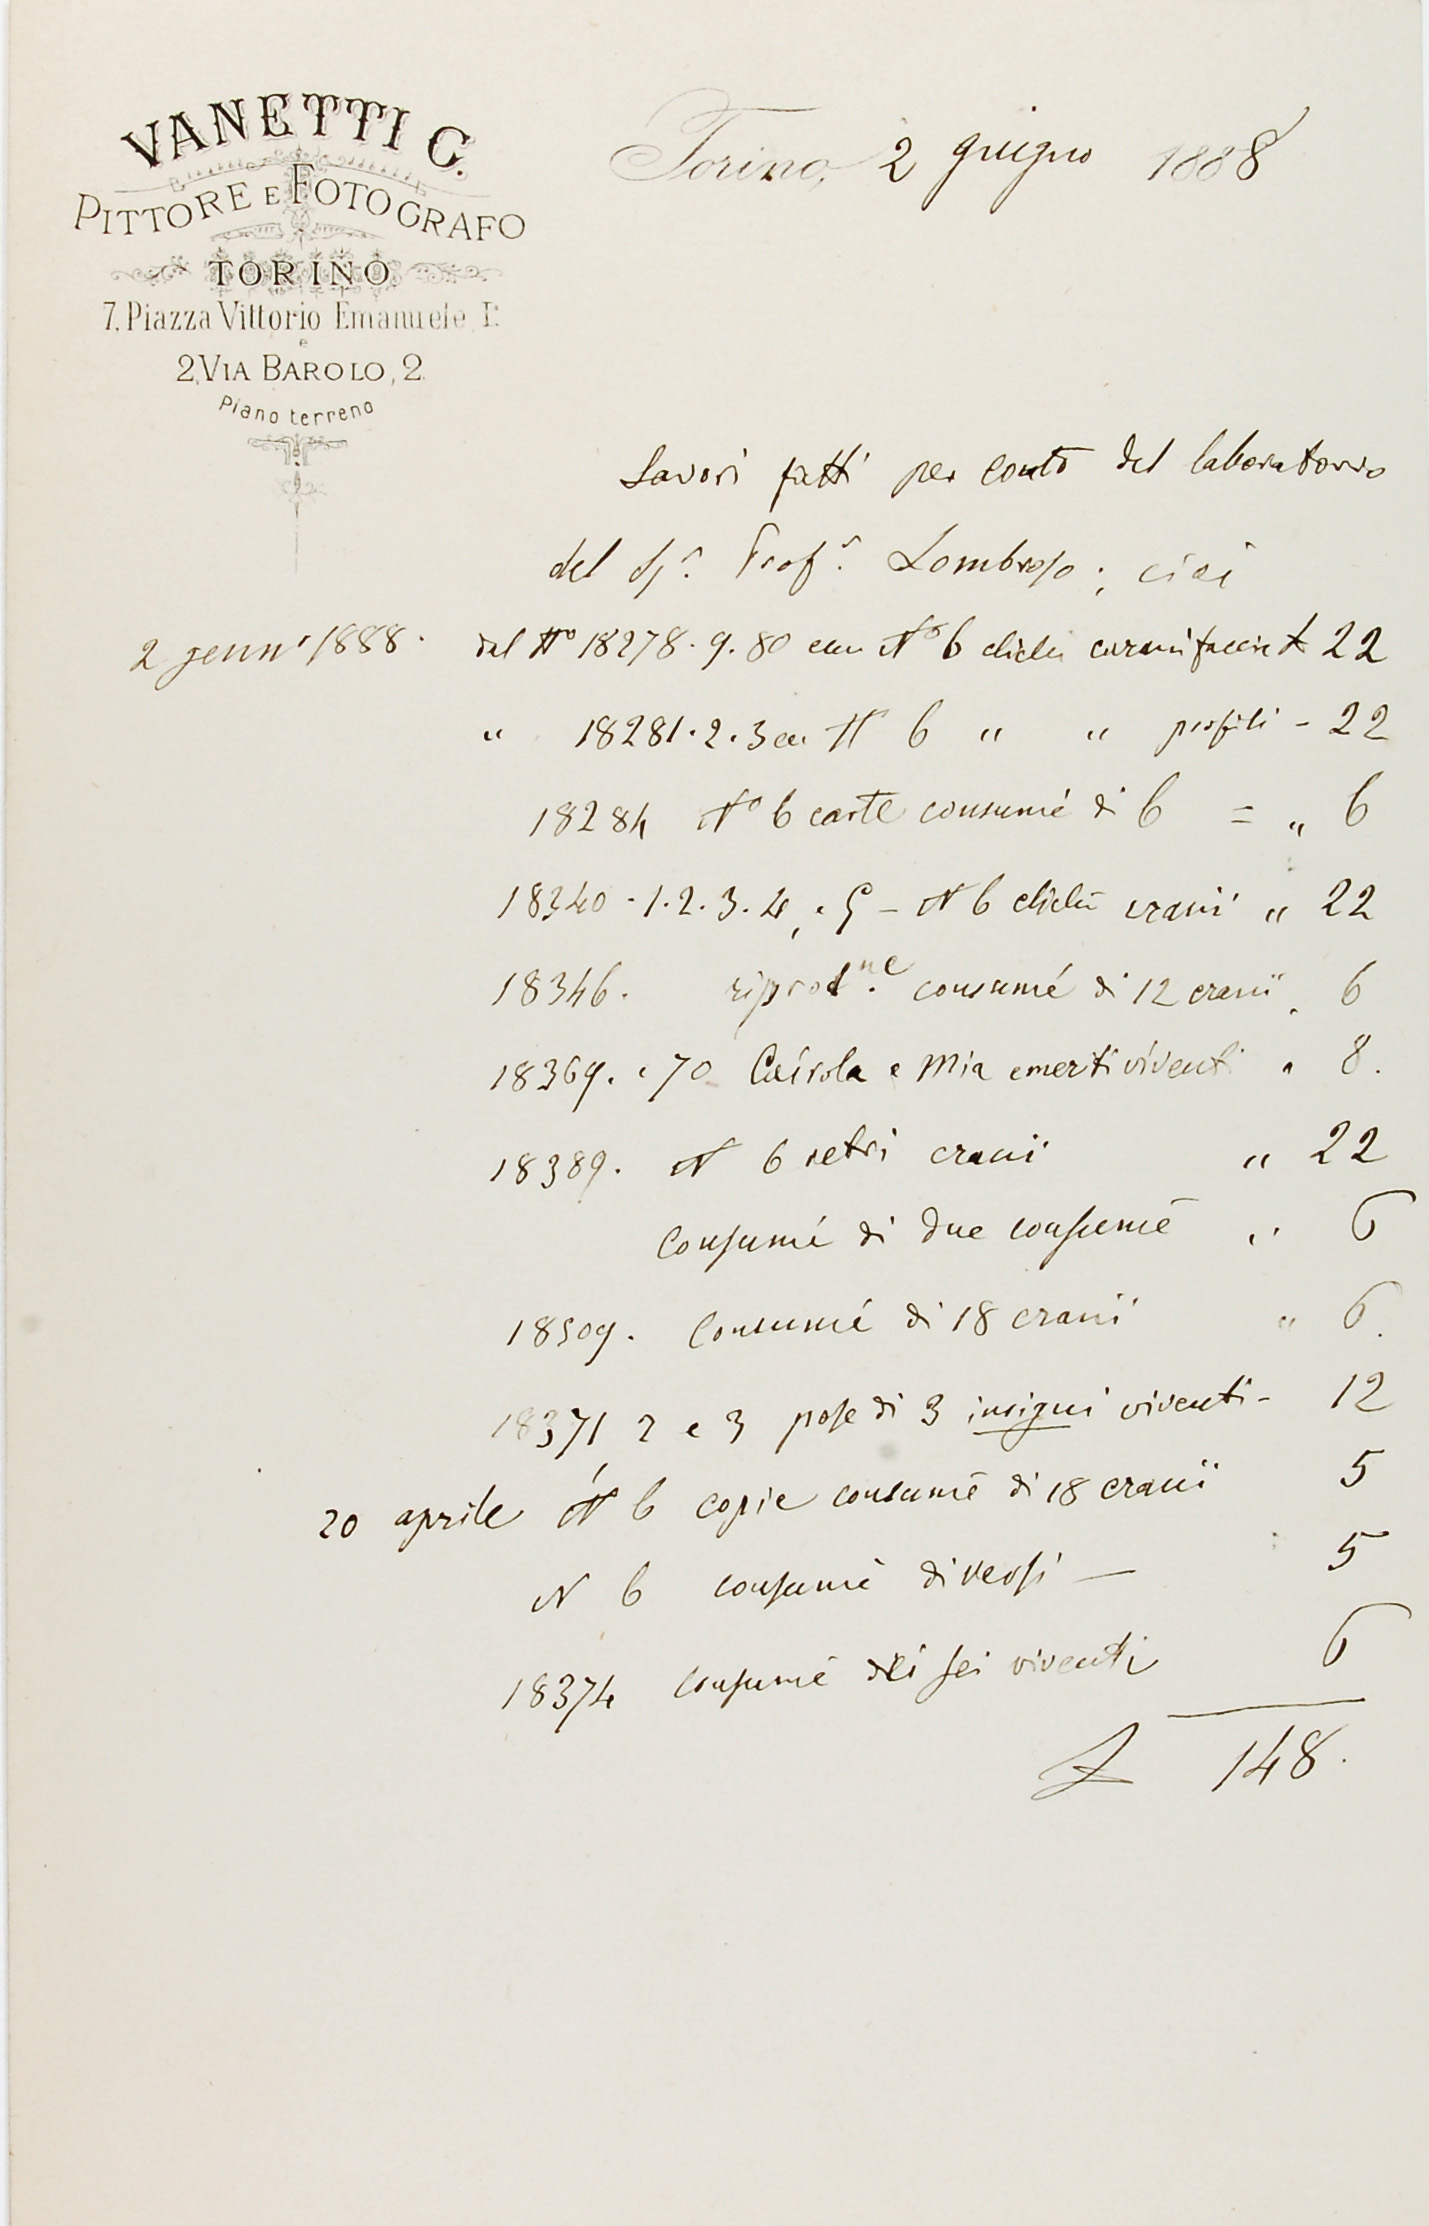 VANETTI C.
PITTORE E FOTOGRAFO
TORINO
7. Piazza Vittorio Emanuele I.
e
2, VIA BAROLO, 2.
Piano terreno
Torino, 2 giugno 1888
Lavori fatti per conto del laboratorio
del Sr. Profr. Lombroso; cioè
2 genn 1888. dal No 18278. 9. 80 No 6 clichè 22
" 18281. 2. 3 N 6 " " profili - 22
18284 No 6 carte consumé di 6 = " 6
18340 - 1. 2. 3. 4, e 5 - N 6 clichè crani " 22
18346. riprodne. consumé di 12 cranii 6
18369. e 70 Cairola e Mia viventi " 8.
18389. N 6 vetri cranii " 22
Consumé di due consumé " 6
18509. Consumé di 18 cranii " 6.
18371 2 e 3 pose di 3 insigni viventi - 12
20 aprile N 6 copie consumé di 18 cranii 5
N 6 consumé diversi — 5
18374 Consumé dei sei viventi 6
£ 148.